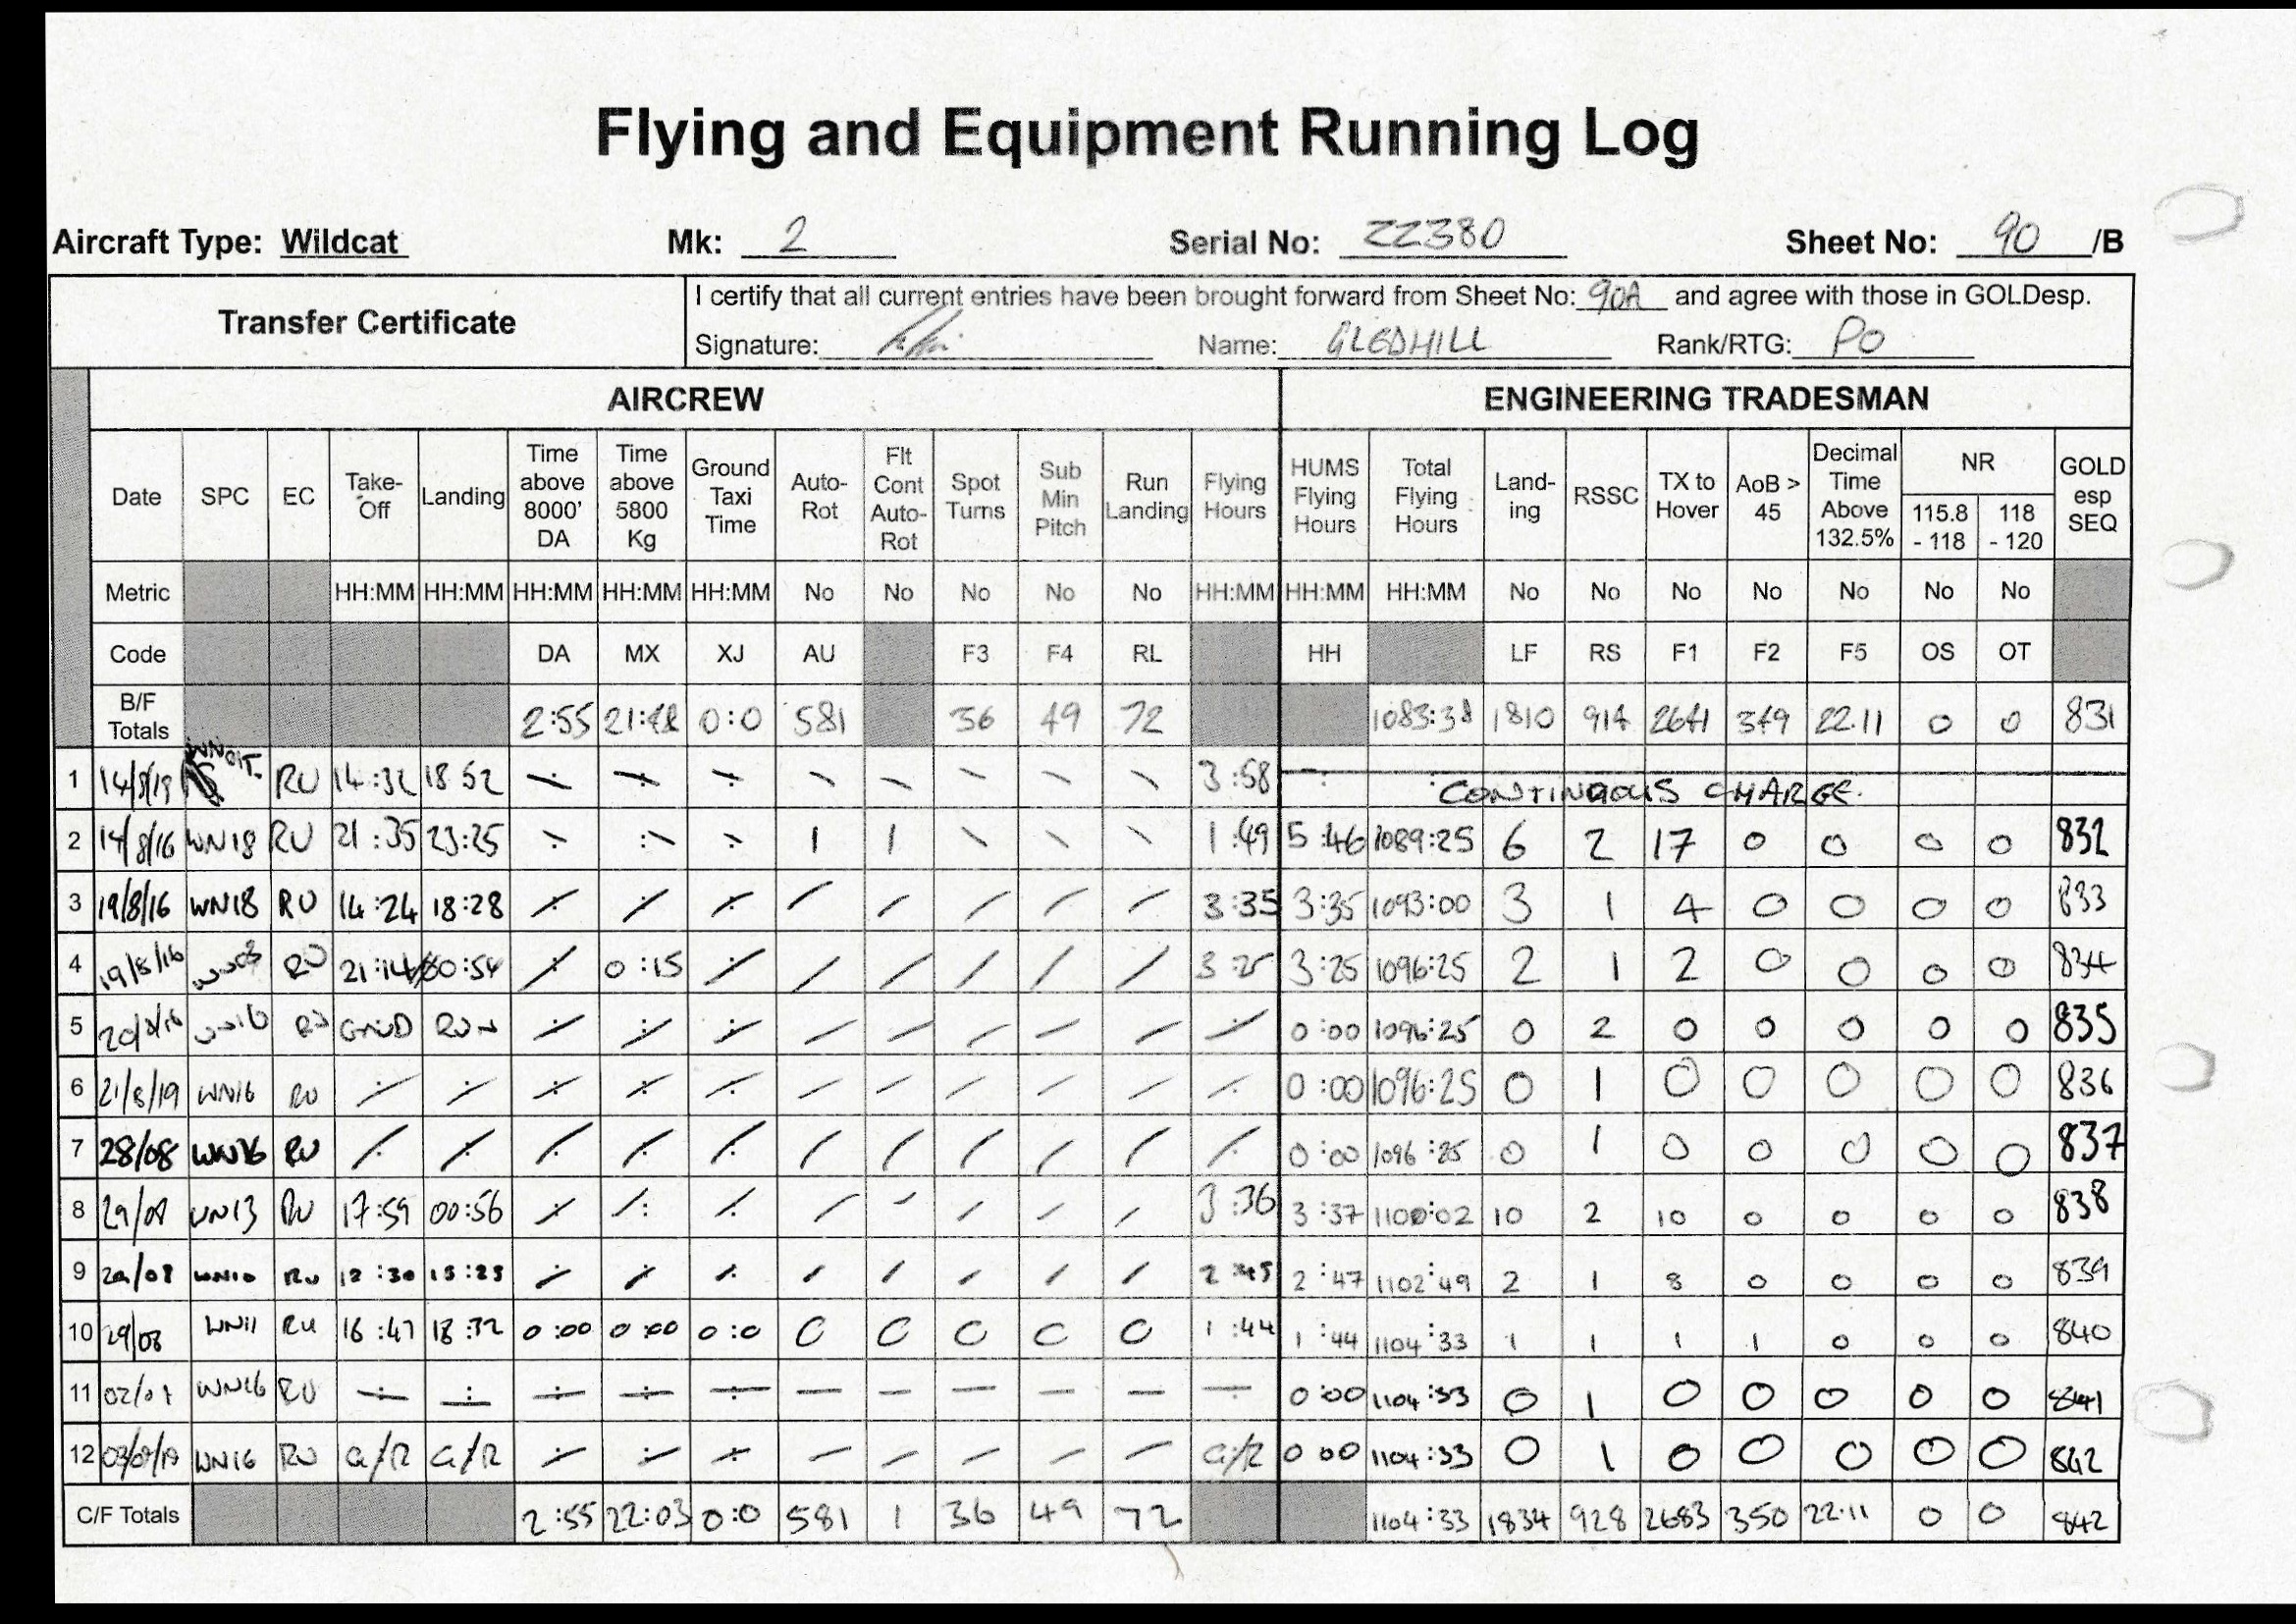 Flying and Equipment Running Log
Aircraft Type: Wildcat Mk: 2 Serial No: ZZ380 Sheet No: 90 /B
Transfer Certificate
I certify that all current entries have been brought forward from Sheet No: 90A and agree with those in GOLDesp.
Signature: Name: GLEDHILL Rank/RTG: PO
AIRCREW ENGINEERING TRADESMAN
Date SPC EC Take-Off Landing Time above 8000' DA Time above 5800 Kg Ground Taxi Time Auto-Rot Flt Cont Auto-Rot Spot Turns Sub Min Pitch Run Landing Flying Hours HUMS Flying Hours Total Flying Hours Land-ing RSSC TX to Hover AoB > 45 Decimal Time Above 132.5% NR 115.8 - 118 118 - 120 GOLD esp SEQ
Metric HH:MM HH:MM HH:MM HH:MM HH:MM No No No No No HH:MM HH:MM HH:MM No No No No No No No
Code DA MX XJ AU F3 F4 RL HH LF RS F1 F2 F5 OS OT
B/F Totals 2:55 21:48 0:0 581 36 49 72 1810 914 2641 349 22.11 0 0 831
1 RU 14:32 18 52 3:58 CONTINUOUS CHARGE.
2 14/8/16 WN18 RU 21:35 23:25 1 1 1:49 5:46 1089:25 6 2 17 0 0 0 0 832
3 19/8/16 WN18 RU 14:24 18:28 / / / / / / / / 3:35 3:35 1093:00 3 1 4 0 0 0 0 833
4 19/8/16 RU 21:14 00:54 / 0:15 / / / / / / 3:25 3:25 1096:25 2 1 2 0 0 0 0 834
5 RU GRND RUN / / / / / / / / / 0:00 1096:25 0 2 0 0 0 0 0 835
6 21/8/19 WN16 RU / / / / / / / / / / / 0:00 1096:25 0 1 0 0 0 0 0 836
7 28/08 WN16 RU / / / / / / / / / / / 0:00 1096:25 0 1 0 0 0 0 0 837
8 WN13 RU 17:59 00:56 / / / / / / / / 3:36 3:37 1100:02 10 2 10 0 0 0 0 838
9 WN10 RU 12:30 15:25 / / / / / / / / 2:45 2:47 1102:49 2 1 8 0 0 0 0 839
10 29/08 WN11 RU 16:47 18:32 0:00 0:00 0:0 0 0 0 0 0 1:44 1:44 1104:33 1 1 1 1 0 0 0 840
11 WN16 RU - - - - - - - - - - - 0:00 1104:33 0 1 0 0 0 0 0 841
12 03/09/19 WN16 RU G/R G/R / / / / / / / / G/R 0 00 1104:33 0 1 0 0 0 0 0 842
C/F Totals 2:55 22:03 0:0 581 1 36 49 72 1104:33 1834 928 2683 350 22.11 0 0 842